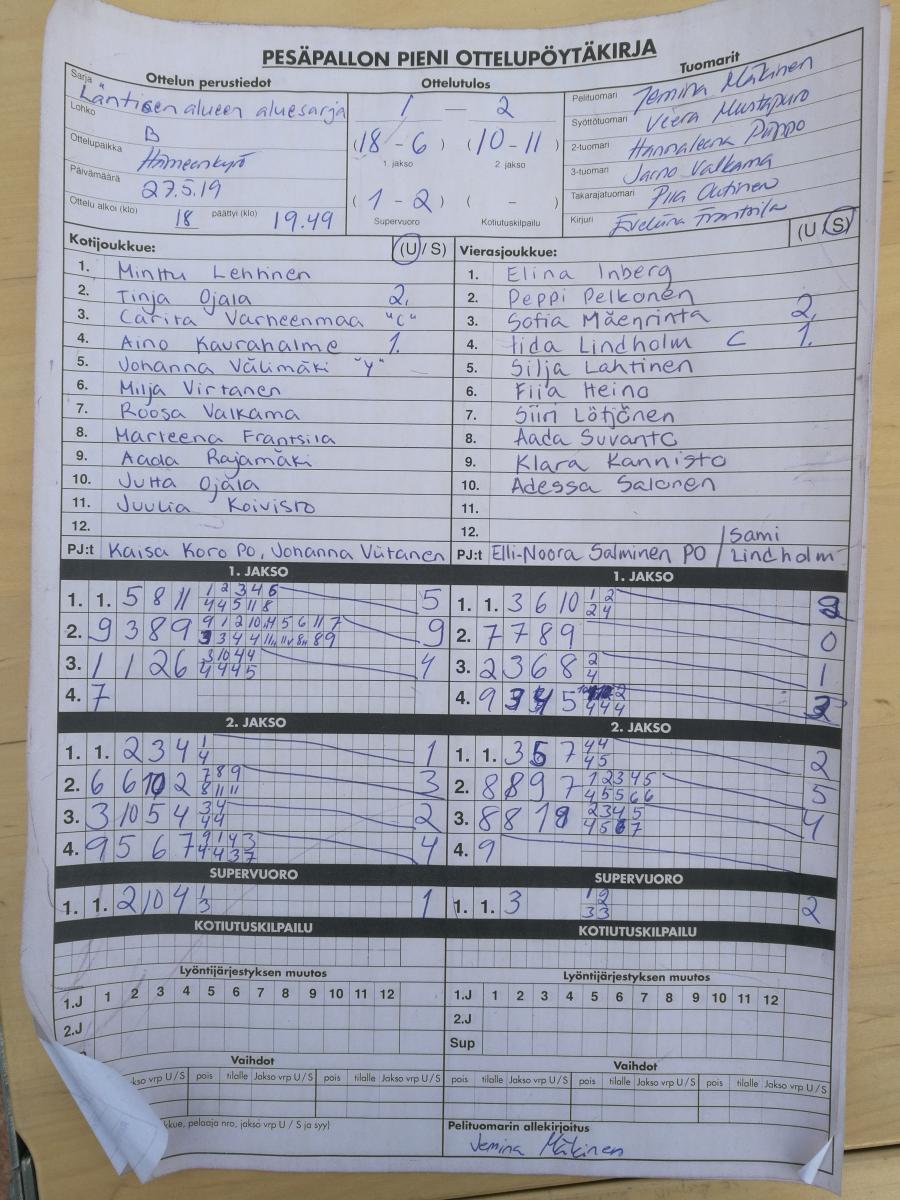 PESÄPALLON PIENI OTTELUPÖYTÄKIRJA
Ottelun perustiedot
Ottelutulos
Tuomarit
Sarja Läntisen alueen aluesarja
Lohko B
Ottelupaikka Hämeenkyrö
Päivämäärä 27.5.19
Ottelu alkoi (klo) 18 päättyi (klo) 19.49
1 – 2
(18 - 6) (10 - 11)
1. jakso 2. jakso
(1 - 2) ( - )
Supervuoro Kotiutuskilpailu
Pelituomari Jemina Mäkinen
Syöttötuomari Veera Mustapuro
2-tuomari Hannaleena Piippo
3-tuomari Jarno Valkama
Takarajatuomari Piia Outinen
Kirjuri Eveliina Frantsila
Kotijoukkue: (U / S)
1. Minttu Lehtinen
2. Tinja Ojala 2.
3. Carita Varheenmaa "C"
4. Aino Kauraholme 1.
5. Johanna Välimäki "Y"
6. Milja Virtanen
7. Roosa Valkama
8. Marleena Frantsila
9. Aada Rajamäki
10. Jutta Ojala
11. Juulia Koivisto
12.
PJ:t Kaisa Koro PO, Johanna Viitanen
Vierasjoukkue: (U / S)
1. Elina Inberg
2. Peppi Pelkonen
3. Sofia Mäenrinta 2.
4. Iida Lindholm C 1.
5. Silja Lahtinen
6. Fiia Heino
7. Siiri Lötjönen
8. Aada Suvanto
9. Klara Kannisto
10. Adessa Salonen
11.
12.
PJ:t Elli-Noora Salminen PO / Sami Lindholm
1. JAKSO
1. 1. 5 8 11 1 2 3 4 6 5
4 4 5 11 8
2. 9 3 8 9 9
3. 1 1 2 6 3 10 4 4 4
4 4 4 5
4. 7
1. JAKSO
1. 1. 3 6 10 1 2
2 4
2. 7 7 8 9 0
3. 2 3 6 8 2 1
4
4. 9
2. JAKSO
1. 1. 2 3 4 1 1
4
2. 6 6 10 2 7 8 9 3
8 11 11
3. 3 10 5 4 3 4 2
4 4
4. 9 5 6 7 9 1 4 3 4
4 4 3 7
2. JAKSO
1. 1. 3 5 7 4 4 2
4 5
2. 8 8 9 7 1 2 3 4 5 5
4 5 5 6 6
3. 8 8 1 2 3 4 5 4
4 5 6 7
4. 9
SUPERVUORO
1. 1. 2 10 4 1 1
3
SUPERVUORO
1. 1. 3 1 2 2
3 3
KOTIUTUSKILPAILU
KOTIUTUSKILPAILU
Lyöntijärjestyksen muutos
1.J 1 2 3 4 5 6 7 8 9 10 11 12
2.J
Lyöntijärjestyksen muutos
1.J 1 2 3 4 5 6 7 8 9 10 11 12
2.J
Sup
Vaihdot
kso vrp U / S pois tilalle Jakso vrp U / S pois tilalle Jakso vrp U / S
Vaihdot
pois tilalle Jakso vrp U / S pois tilalle Jakso vrp U / S pois tilalle Jakso vrp U / S
kkue, pelaaja nro, jakso vrp U / S ja syy)
Pelituomarin allekirjoitus
Jemina Mäkinen